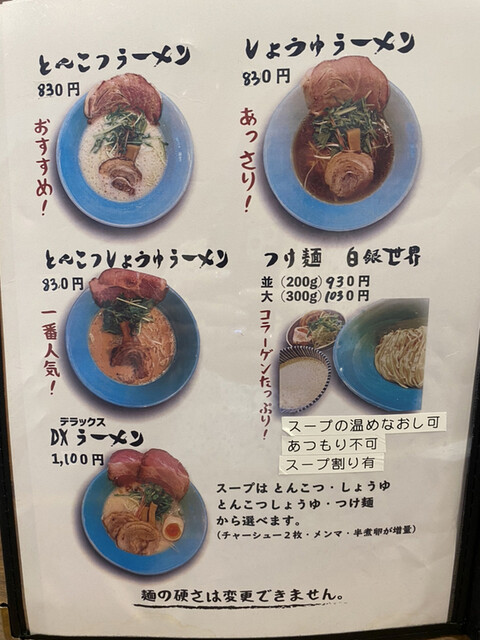 とんこつラーメン
830円
おすすめ！
しょうゆラーメン
830円
あっさり！
とんこつしょうゆラーメン
830円
一番人気！
つけ麺 白銀世界
並 (200g) 930円
大 (300g) 1030円
コラーゲンたっぷり！
スープの温めなおし可
あつもり不可
スープ割り有
デラックス
DX ラーメン
1,100円
スープは とんこつ・しょうゆ
とんこつしょうゆ・つけ麺
から選べます。
(チャーシュー2枚・メンマ・半煮卵が増量)
麺の硬さは変更できません。